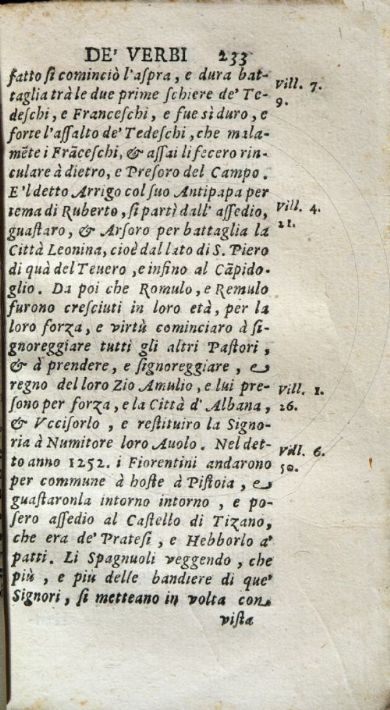 DE' VERBI 233
fatto si cominciò l'aspra, e dura bat-
taglia trà le due prime schiere de' Te-
deschi, e Franceschi, e fue sì duro, e
forte l'assalto de' Tedeschi, che mala-
mẽte i Frãceschi, & assai li fecero rin-
culare à dietro, e Presoro del Campo.
E'l detto Arrigo col suo Antipapa per
tema di Ruberto, si partì dall' assedio,
guastaro, & Arsoro per battaglia la
Città Leonina, cioè dal lato di S. Piero
di quà del Tevero, e infino al Cãpido-
glio. Da poi che Romulo, e Remulo
furono cresciuti in loro età, per la
loro forza, e virtù cominciaro à si-
gnoreggiare tutti gli altri Pastori,
& à prendere, e signoreggiare, e
regno del loro Zio Amulio, e lui pre-
sono per forza, e la Città d' Albana,
& Uccisorlo, e restituiro la Signo-
ria à Numitore loro Avolo. Nel det-
to anno 1252. i Fiorentini andarono
per commune à hoste à Pistoia, e
guastaronla intorno intorno, e po-
sero assedio al Castello di Tizano,
che era de' Pratesi, e Hebborlo a'
patti. Li Spagnuoli veggendo, che
più, e più delle bandiere di que'
Signori, si metteano in volta con
vista
Vill. 7.
9.
Vill. 4.
21.
Vill. 1.
26.
Vill. 6.
50.